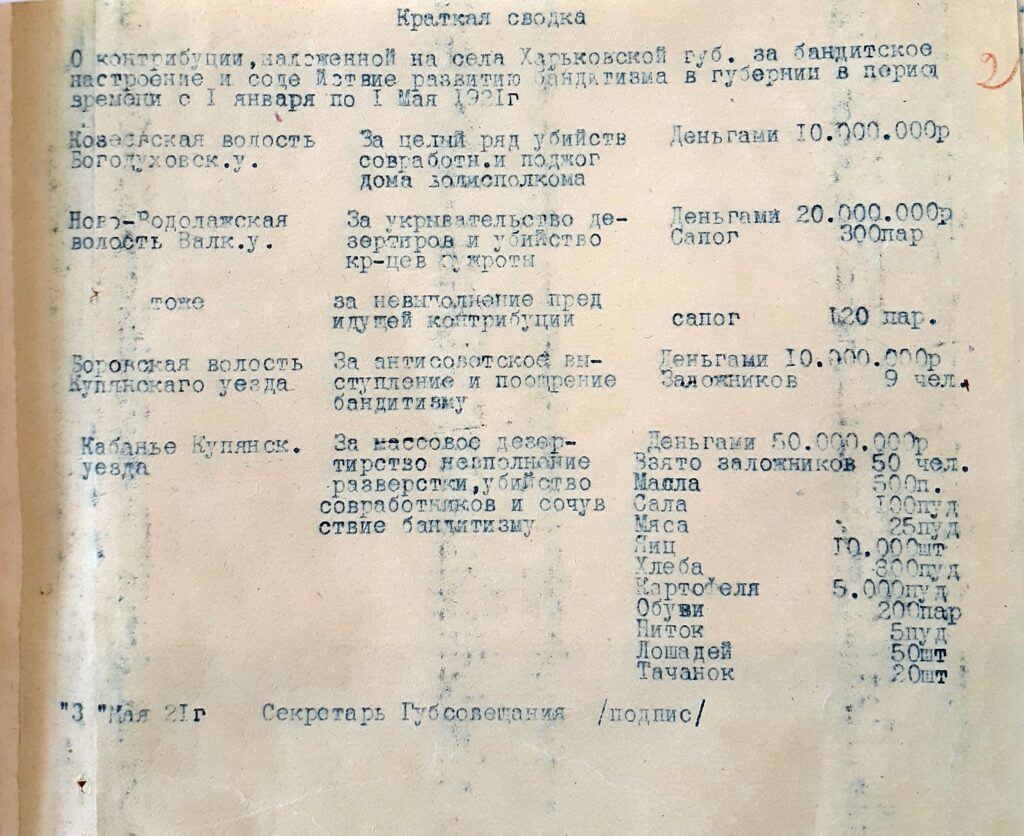 Краткая сводка
2
О контрибуции,наложенной на села Харьковской губ. за бандитское
настроение и соде йствие развитию бандитизма в губернии в период
времени с I января по I Мая I92Iг
Козеевская волость За целый ряд убийств Деньгами I0.000.000р
Богодуховск.у. совработн.и поджог
дома волисполкома
Ново-Водолажская За укрывательство де- Деньгами 20.000.000р
волость Валк.у. зертиров и убийство Сапог 300пар
кр-цев
тоже за невыполнение пред
идущей контрибуции сапог I20 пар.
Боровская волость За антисоветское вы- Деньгами I0.000.000р
Купянскаго уезда ступление и поощрение Заложников 9 чел.
бандитизму
Кабанье Купянск. За массовое дезер- Деньгами 50.000.000р
уезда тирство невполнение Взято заложников 50 чел.
разверстки,убийство Масла 500п.
совработников и сочув Сала I00пуд
ствие бандитизму Мяса 25пуд
Яиц I0.000шт
Хлеба 300пуд
Картофеля 5.000пуд
Обуви 200пар
Ниток 5пуд
Лошадей 50шт
Тачанок 20шт
"3 "Мая 2Iг Секретарь Губсовещания /подпис/